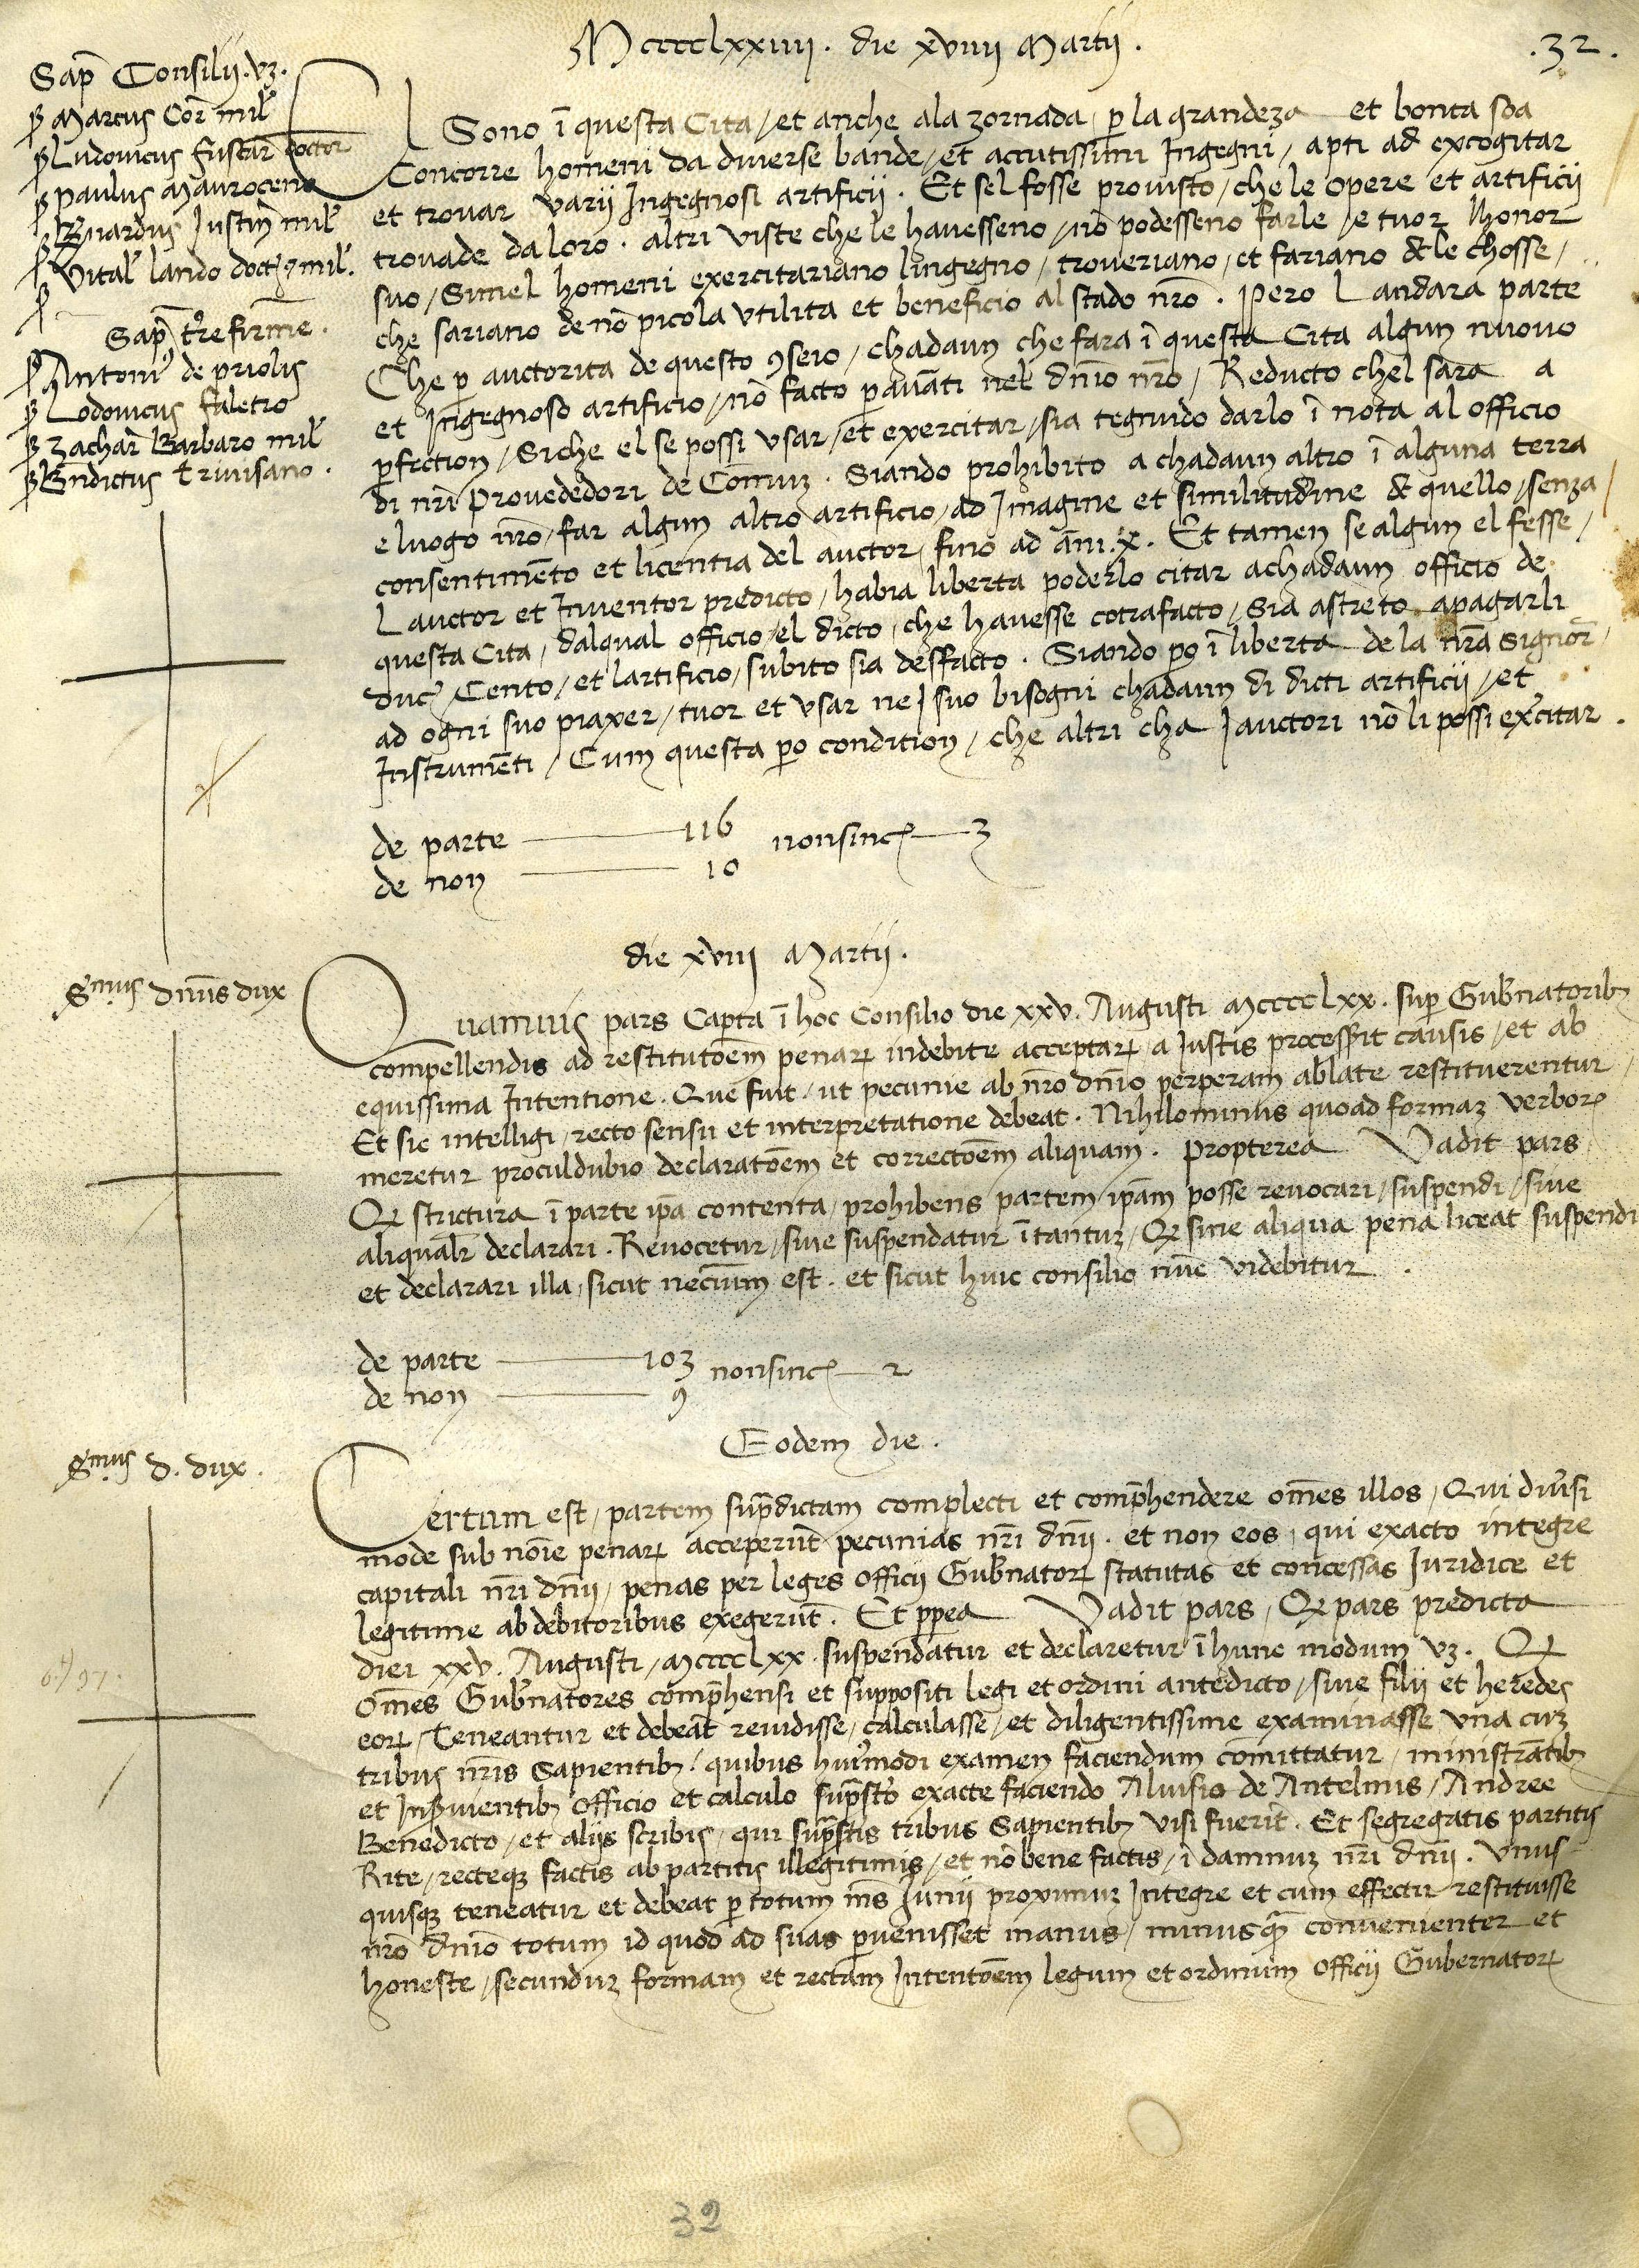 Mcccclxxiiii . die xviiii Martii .
.32.
Sap̄ Consilii . vꝫ .
ꝑ Marcus Cor̄ mil̄
ꝑ Ludovicus fuscar̄ doctor
ꝑ paulus Mauroceno
ꝑ Bn̄ardus Justin̄ mil̄
ꝑ Vital̄ lando doct ⁊ mil̄ .
Sap̄ tr̄e firme .
ꝑ Antoniꝰ de priolis
ꝑ Lodovicus faletro
ꝑ zachar̄ Barbaro mil̄
ꝑ Bn̄dictus trivisano .
El Sono ī questa Cita / et anche ala zornada / ꝑ la grandeza et bonta soa
Concorre homeni da diverse bande / et accutissimi Ingegni / apti ad excogitar
et trovar varii Ingegnosi artificii . Et sel fosse provisto / che le opere et artificii
trovade da loro . altri viste che le havesseno / nō podesseno farle / e tuor lhonor
suo / Simel homeni exercitariano lingegno / troveriano / et fariano de le chosse /
che sariano de nō picola utilita et beneficio al stado nr̄o . Pero Landara parte
Che ꝑ auctorita de questo ꝯseio / chadaun che fara ī questa Cita algun nuovo
et Ingegnoso artificio / nō facto ꝑ avāti nel dn̄io nr̄o / Reducto chel sara a
ꝑfection / Siche el se possi usar / et exercitar / sia tegnudo darlo ī nota al officio
di nr̄i Provededori de Comuꝫ . Siando prohibito a chadaun altro ī alguna terra
e luogo nr̄o / far algun altro artificio / ad Imagine et similitudine de quello / senza
consentimēto et licentia del auctor / fino ad āni . x . Et tamen se algun el fesse /
L auctor et Inventor predicto / habia liberta poderlo citar a chadaun officio de
questa Cita / dalqual officio / el dicto / che havesse cōtrafacto / Sia astreto a pagarli
duc̄ / Cento / et lartificio / subito sia desfacto . Siando ꝑo ī liberta de la nr̄a Signor̄ /
ad ogni suo piaxer / tuor et usar ne I suo bisogni chadaun di dicti artificii / et
Instrumēti / Cum questa ꝑo condition / che altri cha I auctori nō li possi exercitar .
de parte 116
de non 10
nonsinc̄ 3
die xviii Martii .
Sermus dn̄us dux
Quamvis pars Capta ī hoc Consilio die xxv . Augusti Mcccclxx . suꝑ Gub̄natoribꝫ
compellendis ad restitutōem penaꝝ indebite acceptaꝝ / a Iustis processit causis / et ab
equissima Intentione . Que fuit / ut pecunie ab nr̄o dn̄io perperam ablate restituerentur /
Et sic intelligi / recto sensu et interpretatione debeat . Nihilominus quoad formaꝫ verboꝝ
meretur proculdubio declaratōem et correctōem aliquam . Propterea Vadit pars
Qꝫ strictura ī parte ip̄a contenta / prohibens partem ip̄am posse revocari / suspendi / sive
aliqualr̄ declarari . Revocetur / sive suspendatur ī tantuꝫ / Qꝫ sine aliqua pena liceat suspendi
et declarari illa / sicut nec̄ium est . et sicut huic consilio nūc videbitur .
de parte 103
de non 9
nonsinc̄ 2
Eodem die .
Sermus d . dux .
Certum est / partem sup̄dictam complecti et comp̄hendere om̄es illos / Qui div̄si
mode sub noīe penaꝝ acceperūt pecunias nr̄i dn̄ii . et non eos / qui exacto integre
capitali nr̄i dn̄ii / penas per leges officij Gub̄natoꝝ statutas et concessas Iuridice et
legitime ab debitoribus exegerūt . Et ꝓpea Vadit pars / Qꝫ pars predicta
diei xxv . Augusti / Mcccclxx . suspendatur et declaretur ī hunc modum vꝫ . Qꝫ
om̄es Gub̄natores comp̄hensi et suppositi legi et ordini antedicto / sive filij et heredes
eoꝝ / Teneantur et debeāt revidisse / calculasse / et diligentissime examinasse una cuꝫ
tribus nr̄is Sapientibꝫ / quibus huiꝰmodi examen faciendum cōmittatur / ministrātibꝫ
et Inẜvientibꝫ officio et calculo sup̄sto exacte faciendo Aluisio de Antelmis / Andree
Benedicto / et alijs scribis / qui sup̄stis tribus Sapientibꝫ visi fuerīt . Et segregatis partitis
Rite / recteqꝫ factis ab partitis illegitimis / et nō bene factis / ī damnuꝫ nr̄i dn̄ii . Unus
quisqꝫ teneatur et debeat ꝑ totum mēs Junij proximuꝫ Integre et cum effectu restituisse
nr̄o dn̄io totum id quod ad suas ꝑvenisset manus / minusqꝫ convenienter et
honeste / secunduꝫ formam et rectam Intentōem legum et ordinum officij Gubernatoꝝ
32